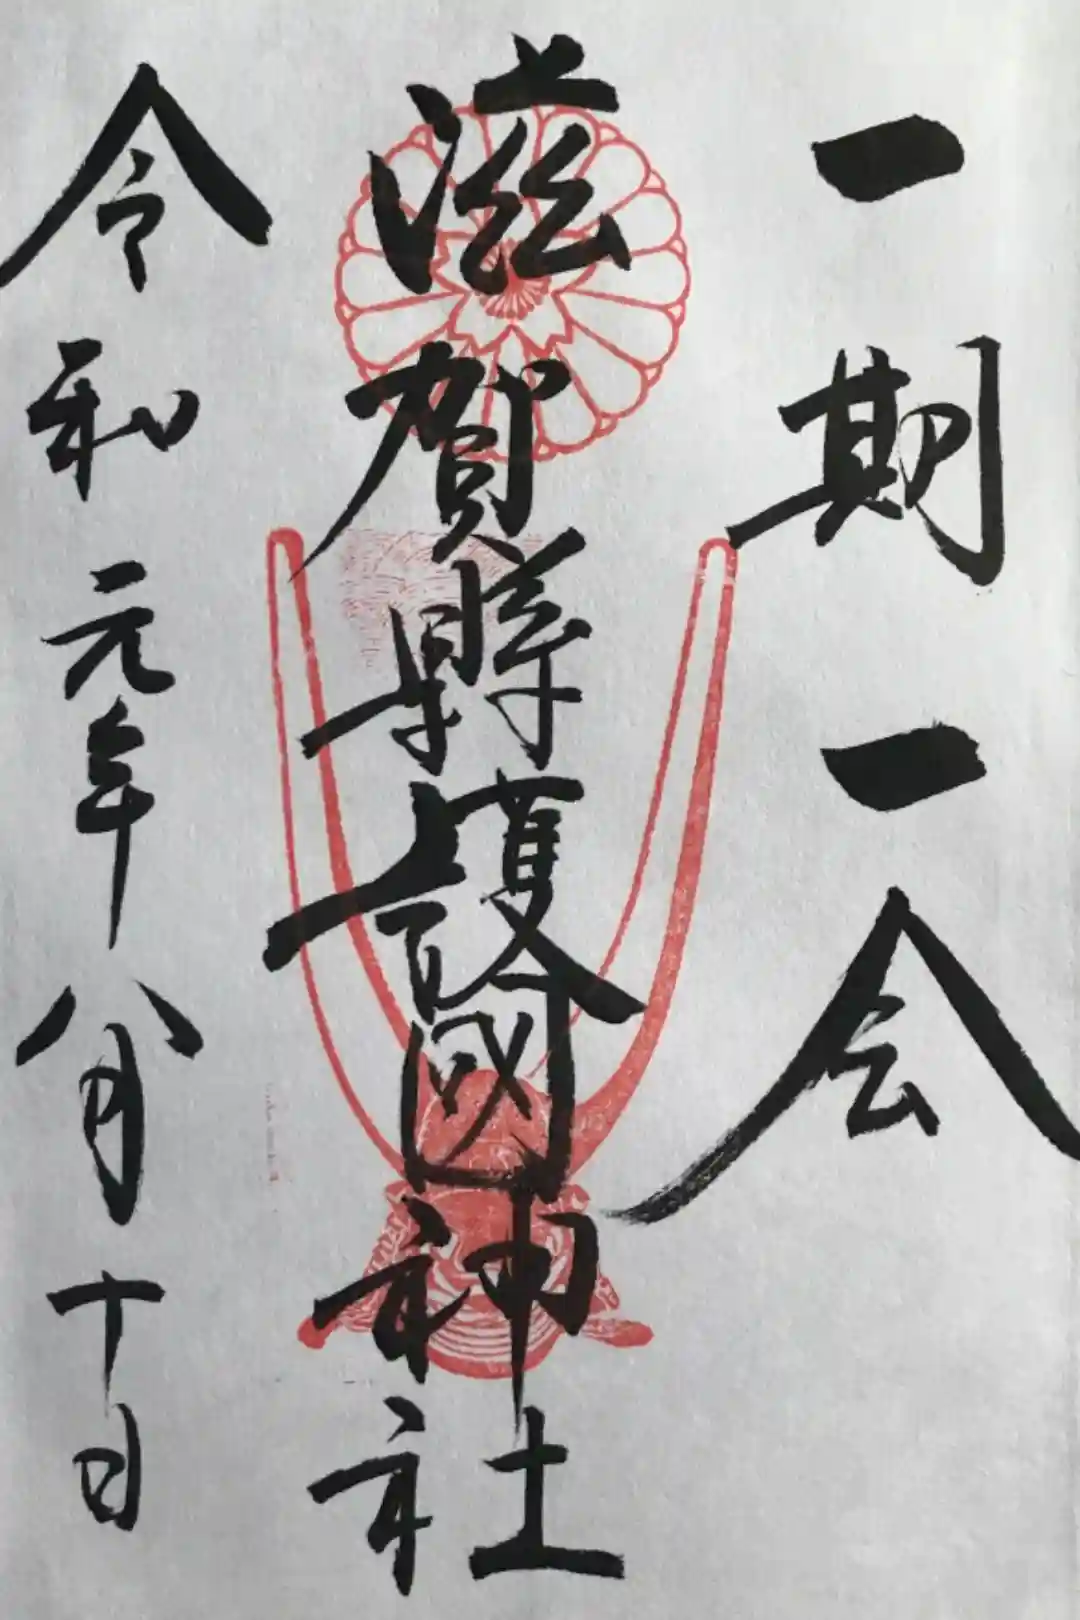 一期一会
滋賀縣護國神社
令和元年八月十日